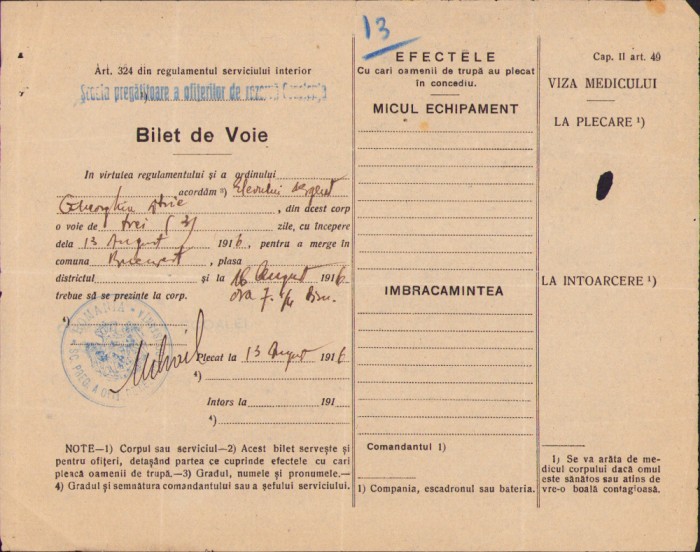 13
Art. 324 din regulamentul serviciului interior
Școala pregătitoare a ofițerilor de rezervă Constanța
Bilet de Voie
In virtutea regulamentului și a ordinului
acordăm ²) Elevului sergent
Gheorghiu , din acest corp
o voie de trei (3) zile, cu începere
dela 13 August 1916, pentru a merge în
comuna București, plasa
districtul și la 16 August 1916
trebue să se prezinte la corp. ora 7.
ROMANIA
Plecat la 13 August 1916
⁴)
Intors la 191
⁴)
NOTE—1) Corpul sau serviciul—2) Acest bilet servește și
pentru ofițeri, detașând partea ce cuprinde efectele cu cari
pleacă oamenii de trupă.—3) Gradul, numele și pronumele.—
4) Gradul și semnătura comandantului sau a șefului serviciului.
EFECTELE
Cu cari oamenii de trupă au plecat
în concediu.
MICUL ECHIPAMENT
IMBRACAMINTEA
Comandantul 1)
1) Compania, escadronul sau bateria.
Cap. II art. 49
VIZA MEDICULUI
LA PLECARE ¹)
LA INTOARCERE ¹)
1) Se va arăta de me-
dicul corpului dacă omul
este sănătos sau atins de
vre-o boală contagioasă.